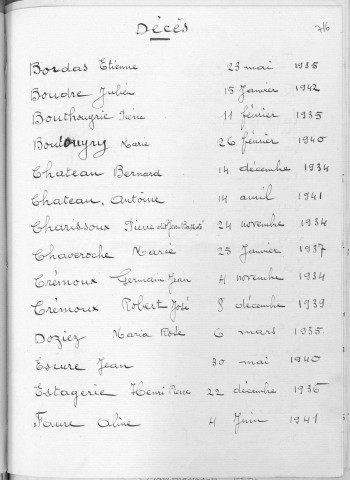 Décès
Bordas Etienne 23 mai 1935
Boudre Julien 15 Janvier 1942
Bouthougrie Pierre 11 février 1935
Boutougry Marie 26 février 1940
Chateau Bernard 14 décembre 1934
Chateau Antoine 14 avril 1941
Charissoux Pierre dit Jean 24 novembre 1934
Chaveroche Marie 25 Janvier 1937
Crémoux Germain Jean 4 novembre 1934
Crémoux Robert José 8 décembre 1939
Doziez Maria Rose 6 mars 1935
Escure Jean 30 mai 1940
Estagerie Henri Pierre 22 décembre 1936
Faure Aline 4 Juin 1941